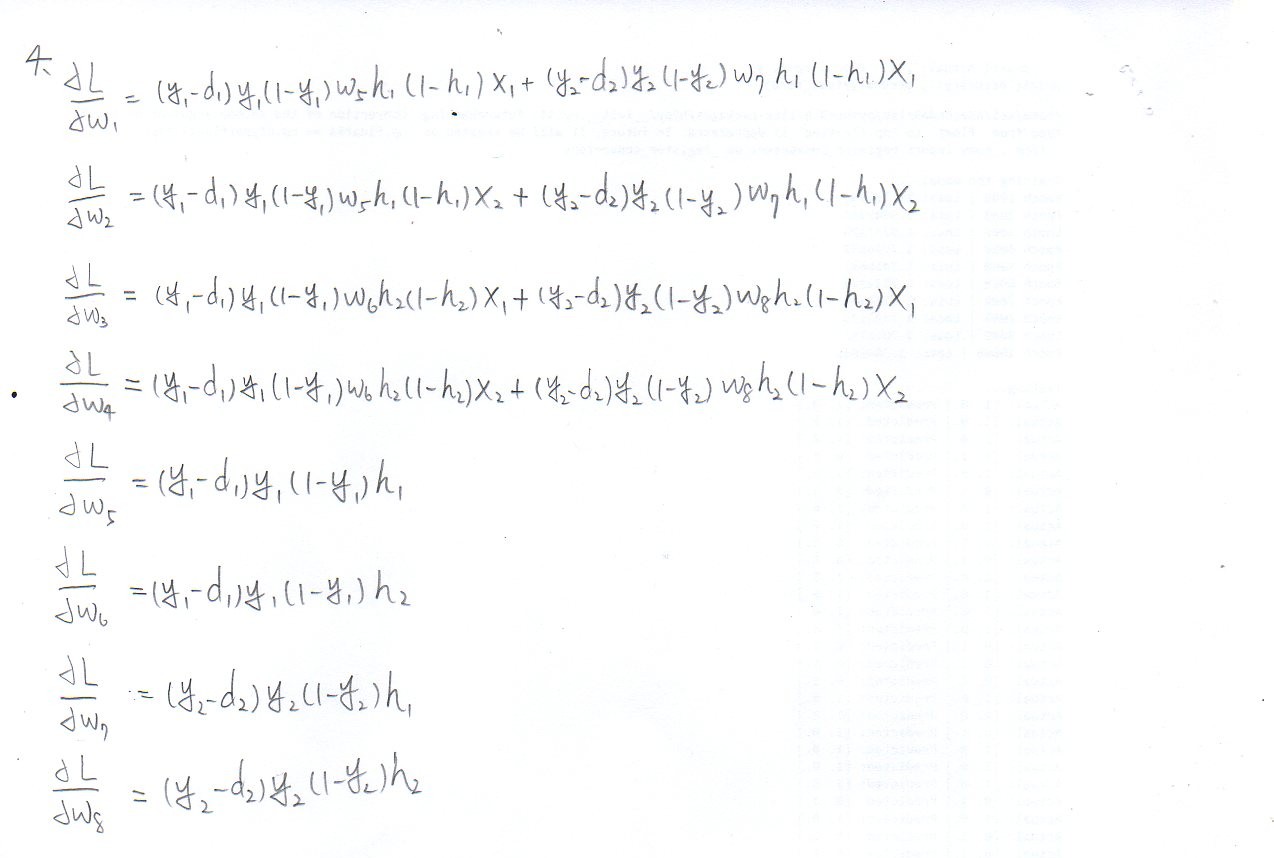 4. ∂L/∂w₁ = (y₁-d₁)y₁(1-y₁)w₅h₁(1-h₁)x₁ + (y₂-d₂)y₂(1-y₂)w₇h₁(1-h₁)x₁
∂L/∂w₂ = (y₁-d₁)y₁(1-y₁)w₅h₁(1-h₁)x₂ + (y₂-d₂)y₂(1-y₂)w₇h₁(1-h₁)x₂
∂L/∂w₃ = (y₁-d₁)y₁(1-y₁)w₆h₂(1-h₂)x₁ + (y₂-d₂)y₂(1-y₂)w₈h₂(1-h₂)x₁
∂L/∂w₄ = (y₁-d₁)y₁(1-y₁)w₆h₂(1-h₂)x₂ + (y₂-d₂)y₂(1-y₂)w₈h₂(1-h₂)x₂
∂L/∂w₅ = (y₁-d₁)y₁(1-y₁)h₁
∂L/∂w₆ = (y₁-d₁)y₁(1-y₁)h₂
∂L/∂w₇ = (y₂-d₂)y₂(1-y₂)h₁
∂L/∂w₈ = (y₂-d₂)y₂(1-y₂)h₂